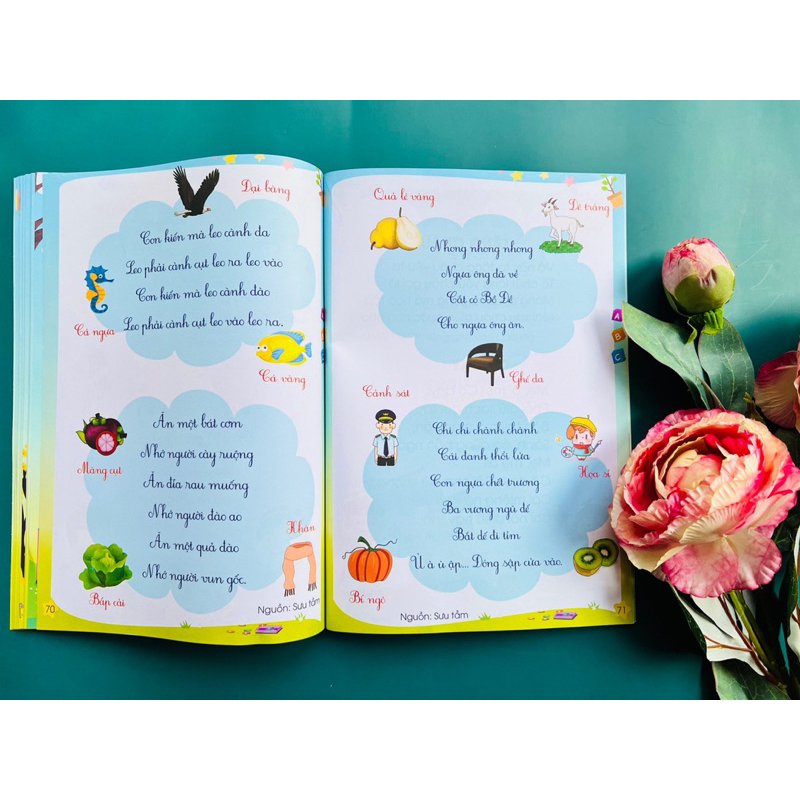 Đại bàng
Con kiến mà leo cành đa
Leo phải cành cụt leo ra leo vào
Con kiến mà leo cành đào
Leo phải cành cụt leo vào leo ra.
Cá ngựa
Cá vàng
Ăn một bát cơm
Nhớ người cày ruộng
Ăn đĩa rau muống
Nhớ người đào ao
Ăn một quả đào
Nhớ người vun gốc.
Măng cụt
Khăn
Bắp cải
70
Nguồn: Sưu tầm
Quả lê vàng
Dê trắng
Nhong nhong nhong
Ngựa ông đã về
Cắt cỏ Bồ Đề
Cho ngựa ông ăn.
Ghế da
Cảnh sát
Chi chi chành chành
Cái đanh thổi lửa
Con ngựa chết trương
Ba vương ngũ đế
Bắt dế đi tìm
Ù à ù ập... Đóng sập cửa vào.
Họa sĩ
Bí ngô
Nguồn: Sưu tầm
71
A
B
C